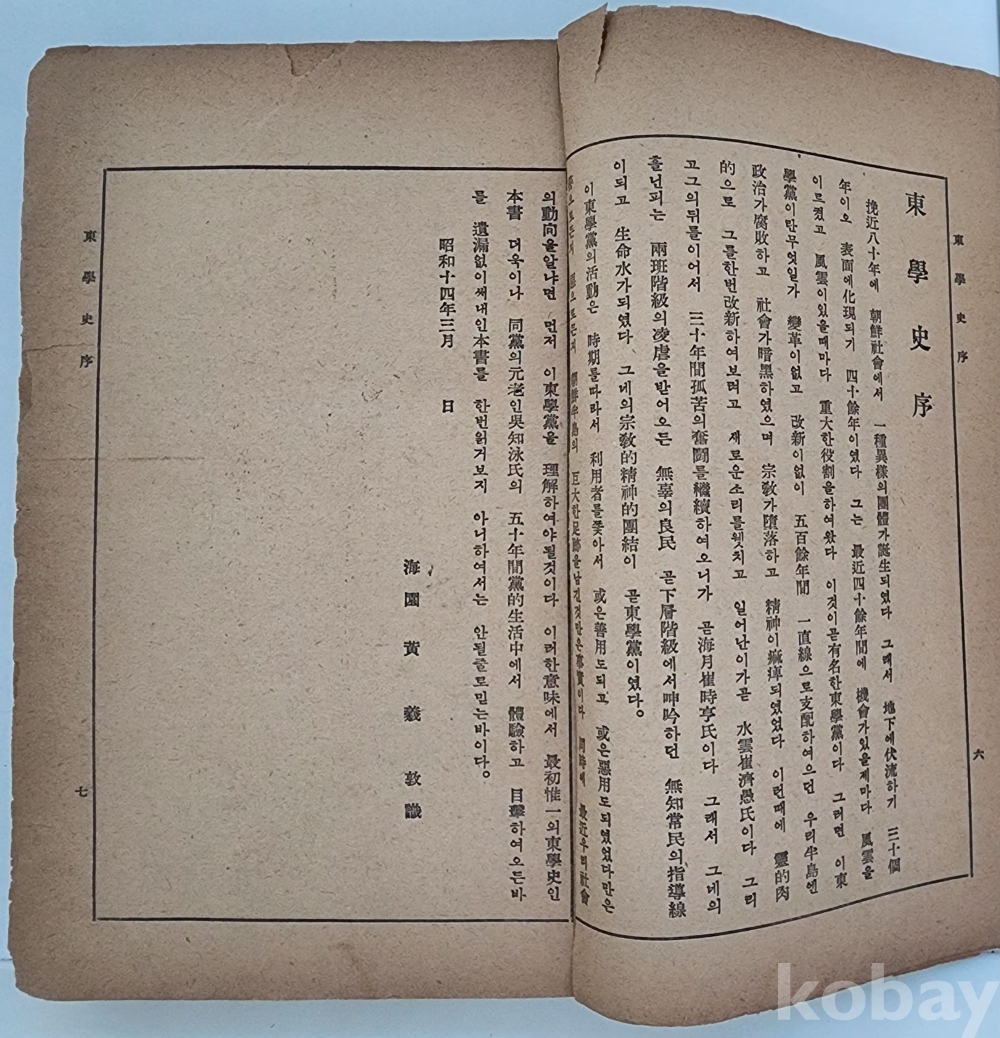 東學史序
挽近八十年에 朝鮮社會에서 一種異樣의團體가誕生되였다 그래서 地下에伏流하기 三十個
年이오 表面에化現되기 四十餘年이였다 그는 最近四十餘年間에 機會가있을제마다 風雲을
이르켰고 風雲이있을때마다 重大한役割을하여왔다 이것이곧有名한東學黨이다 그러면 이東
學黨이란무엇일가 變革이없고 改新이없이 五百餘年間 一直線으로支配하여으던 우리半島엔
政治가腐敗하고 社會가暗黑하였으며 宗敎가墮落하고 精神이痲痺되였었다 이런때에 靈的肉
的으로 그를한번改新하여보려고 새로운소리를웻치고 일어난이가곧 水雲崔濟愚氏이다 그리
고그의뒤를이어서 三十年間孤苦의奮鬪를繼續하여오니가 곧海月崔時亨氏이다 그래서 그네의
흘닌피는 兩班階級의凌虐을받어오든 無辜의良民 곧下層階級에서呻吟하던 無知常民의指導線
이되고 生命水가되였다 그네의宗敎的精神的團結이 곧東學黨이였다。
이東學黨의活動은 時期를따라서 利用者를쫓아서 或은善用도되고 或은惡用도되였었다만은
으로든지 으로든지 朝鮮半島의 巨大한足跡을남긴것만은事實이다 同時에 最近우리社會
의動向을알냐면 먼저 이東學黨을 理解하여야될것이다 이러한意味에서 最初惟一의東學史인
本書 더욱이나 同黨의元老인吳知泳氏의 五十年間黨的生活中에서 體驗하고 目擊하여오든바
를 遺漏없이써내인本書를 한번읽거보지 아니하여서는 안될줄로믿는바이다。
昭和十四年三月 日
海圓 黃義敦識
東學史序
六
東學史序
七
kobay